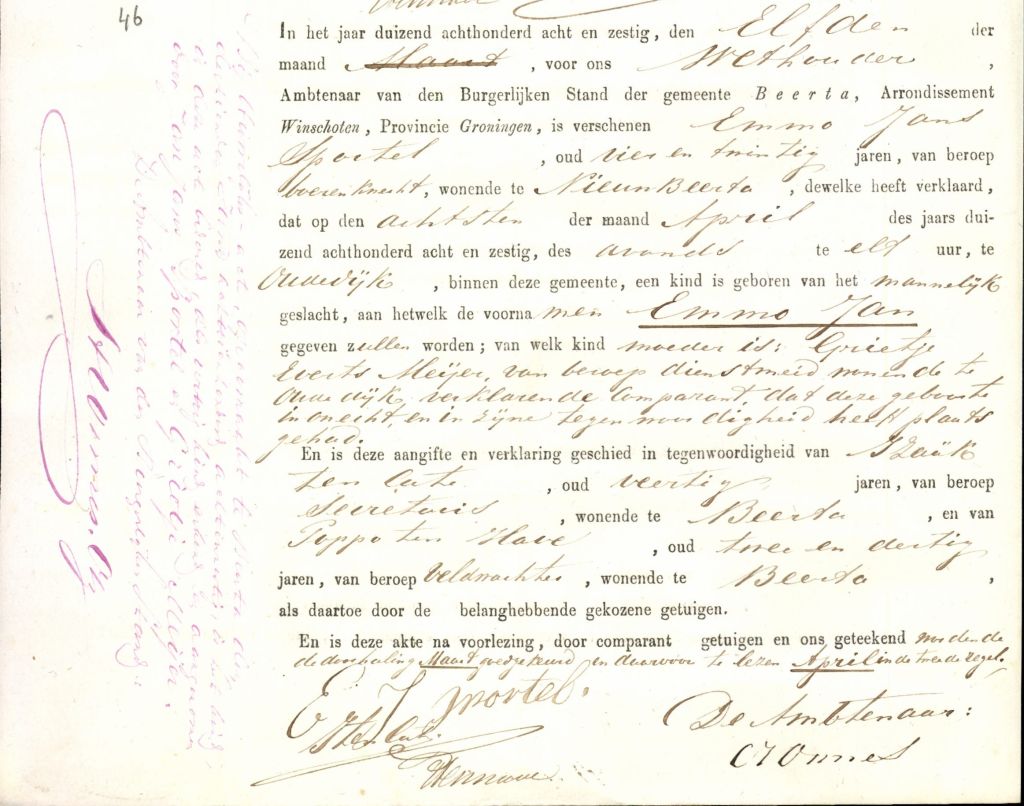 46
In het jaar duizend achthonderd acht en zestig, den Elfden der
maand Maart, voor ons Wethouder,
Ambtenaar van den Burgerlijken Stand der gemeente Beerta, Arrondissement
Winschoten, Provincie Groningen, is verschenen Emmo Jans
Sportel, oud vier en twintig jaren, van beroep
boerenknecht, wonende te Nieuw Beerta, dewelke heeft verklaard,
dat op den achtsten der maand April des jaars dui-
zend achthonderd acht en zestig, des avonds te elf uur, te
Oudedijk, binnen deze gemeente, een kind is geboren van het mannelijk
geslacht, aan hetwelk de voornamen Emmo Jan
gegeven zullen worden; van welk kind moeder is: Grietje
Everts Meijer, van beroep dienstmeid wonende te
Oudedijk, verklarende Comparant, dat deze geboorte
in onecht, en in zijne tegenwoordigheid heeft plaats
gehad.
En is deze aangifte en verklaring geschied in tegenwoordigheid van Izaäk
ten Cate, oud veertig jaren, van beroep
Secretaris, wonende te Beerta, en van
Poppo ten Have, oud twee en dertig
jaren, van beroep Veldwachter, wonende te Beerta,
als daartoe door de belanghebbende gekozene getuigen.
En is deze akte na voorlezing, door comparant getuigen en ons geteekend wordende
de doorhaling Maart goedgekeurd en daarvoor te lezen April in de tweede regel.
E. J. Sportel.
ItenCate.
PtenHave.
De Ambtenaar:
Bij huwelijks-acte,
van Jan Jans Sportel en Grietje Meijer.
De Ambtenaar van den Burgerlijken Stand